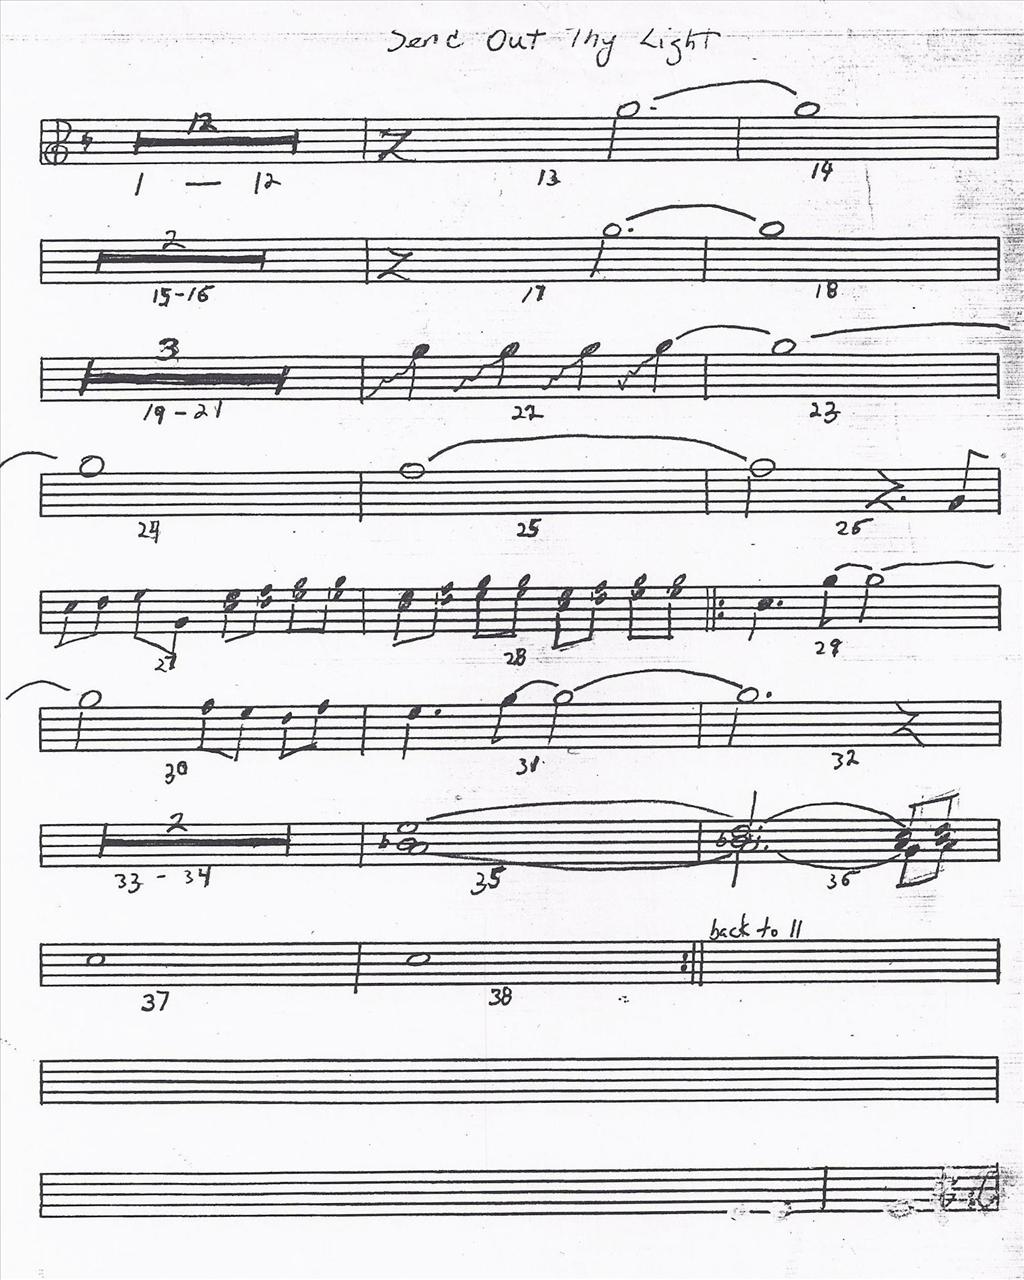 Send Out Thy Light
12
1 — 12 13 14
2
15-16 17 18
3
19-21 22 23
24 25 26
27 28 29
30 31 32
2
33-34 35 36
back to 11
37 38